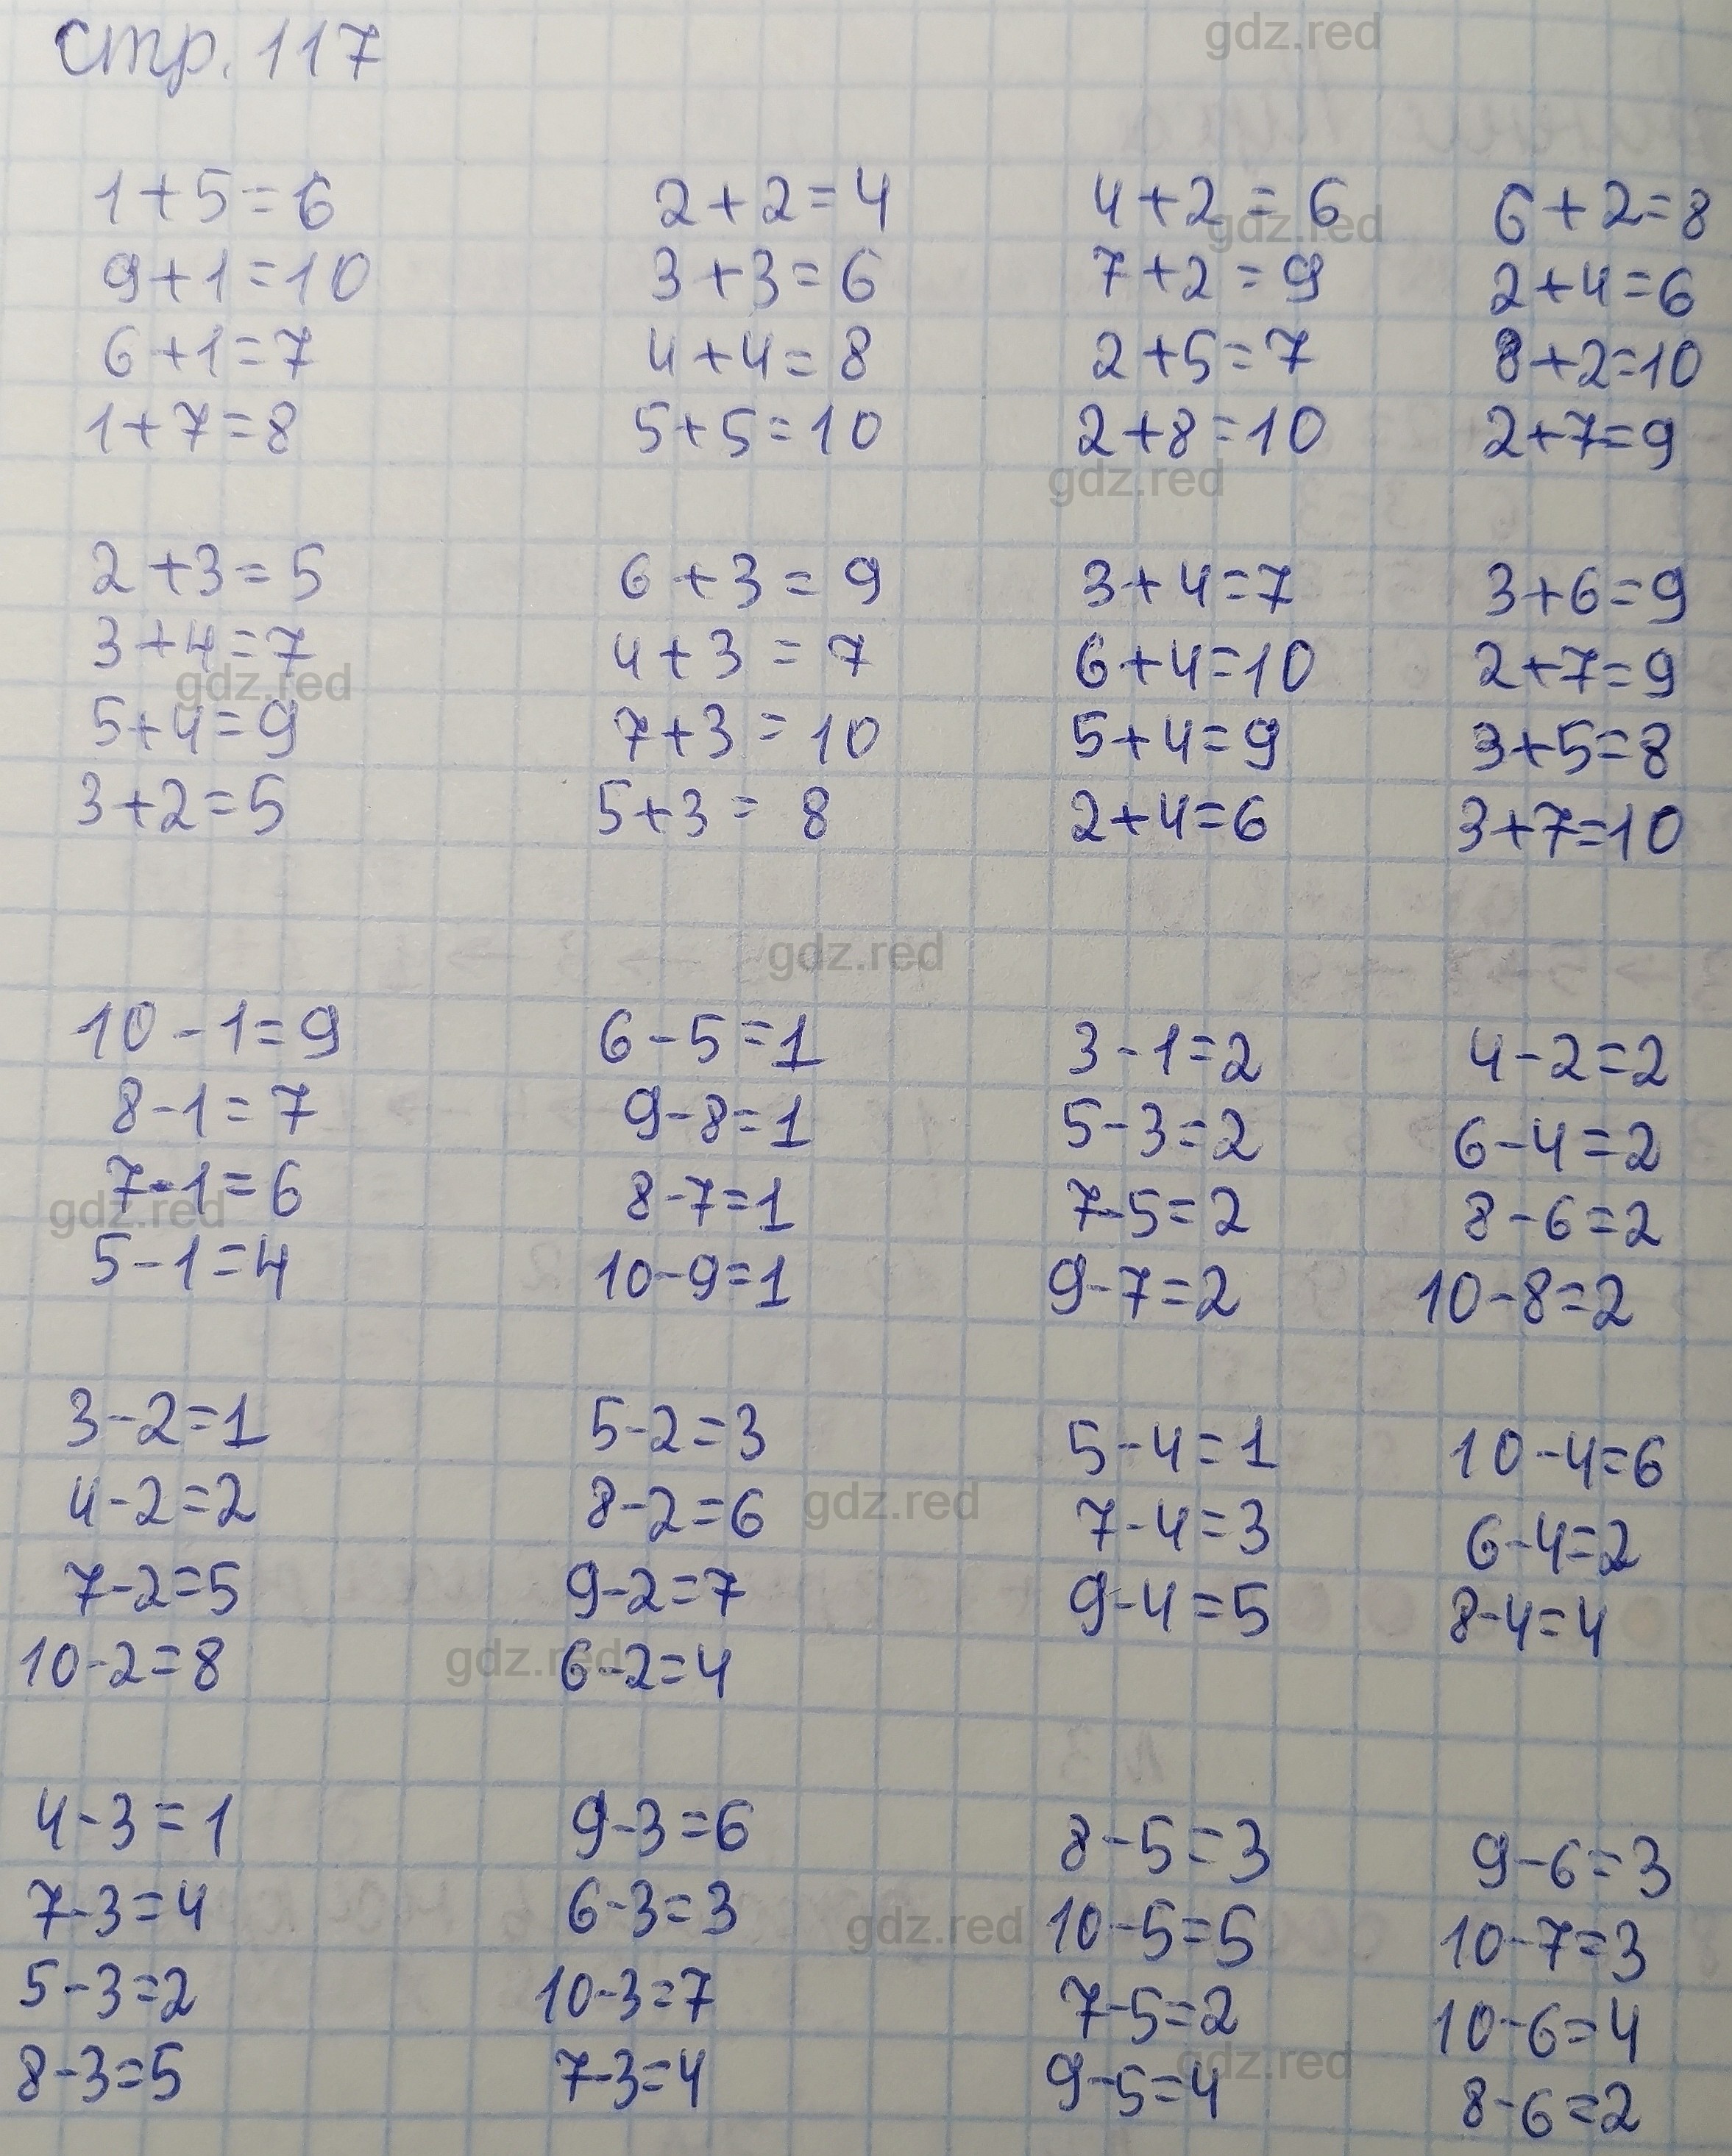 стр. 117
1+5=6 2+2=4 4+2=6 6+2=8
9+1=10 3+3=6 7+2=9 2+4=6
6+1=7 4+4=8 2+5=7 8+2=10
1+7=8 5+5=10 2+8=10 2+7=9
2+3=5 6+3=9 3+4=7 3+6=9
3+4=7 4+3=7 6+4=10 2+7=9
5+4=9 7+3=10 5+4=9 3+5=8
3+2=5 5+3=8 2+4=6 3+7=10
10-1=9 6-5=1 3-1=2 4-2=2
8-1=7 9-8=1 5-3=2 6-4=2
7-1=6 8-7=1 7-5=2 8-6=2
5-1=4 10-9=1 9-7=2 10-8=2
3-2=1 5-2=3 5-4=1 10-4=6
4-2=2 8-2=6 7-4=3 6-4=2
7-2=5 9-2=7 9-4=5 8-4=4
10-2=8 6-2=4
4-3=1 9-3=6 8-5=3 9-6=3
7-3=4 6-3=3 10-5=5 10-7=3
5-3=2 10-3=7 7-5=2 10-6=4
8-3=5 7-3=4 9-5=4 8-6=2
gdz.red
gdz.red
gdz.red
gdz.red
gdz.red
gdz.red
gdz.red
gdz.red
gdz.red
gdz.red